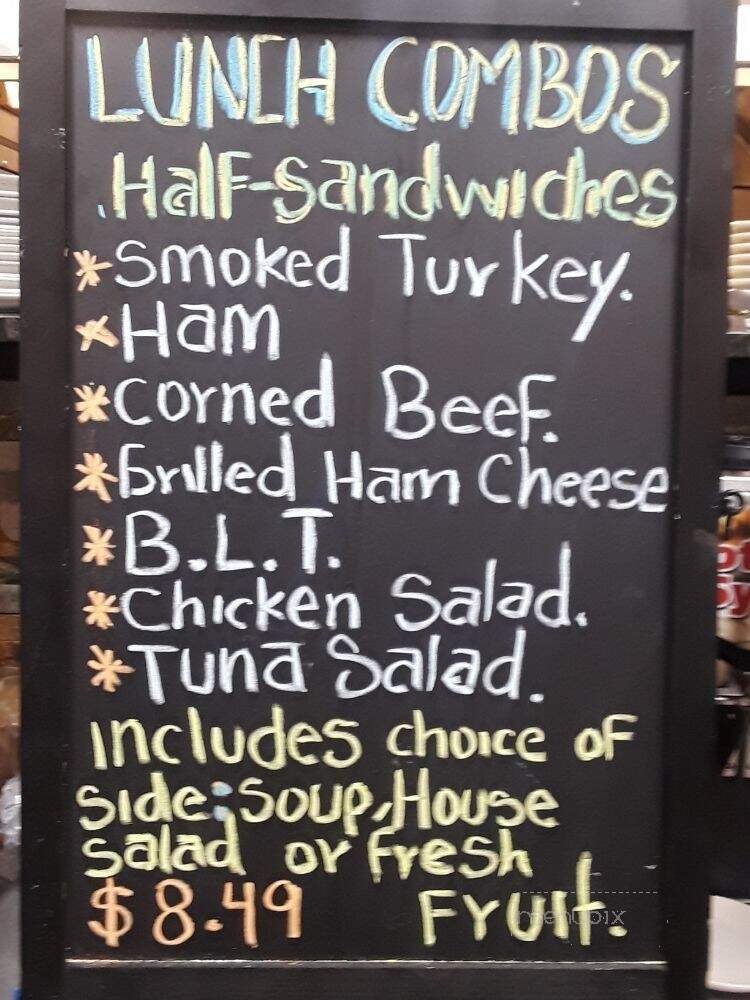 LUNCH COMBOS
Half-Sandwiches
*Smoked Turkey.
*Ham
*Corned Beef.
*Grilled Ham Cheese
*B.L.T.
*Chicken Salad.
*Tuna Salad.
includes choice of
side: Soup, House
salad or Fresh
$8.49 Fruit.
menupix